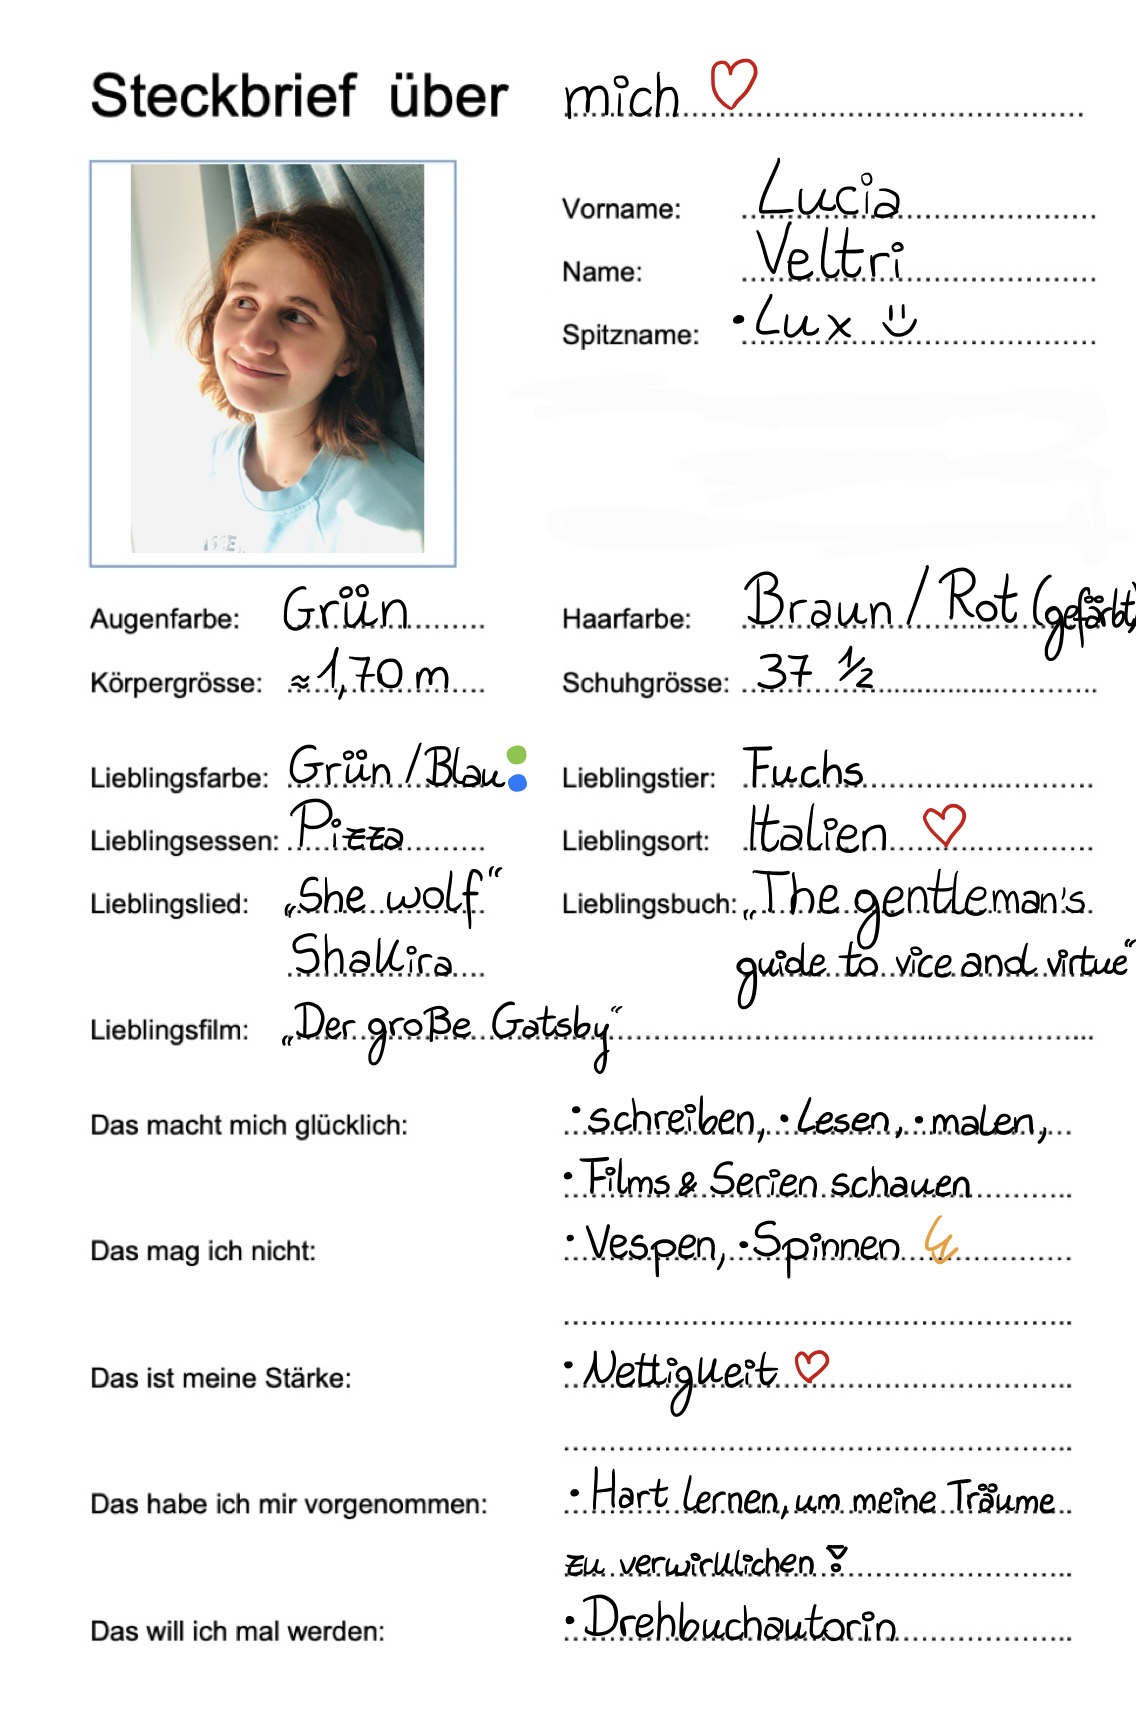 Steckbrief über mich
Vorname: Lucia
Name: Veltri
Spitzname: • Lux
Augenfarbe: Grün
Haarfarbe: Braun / Rot (gefärbt)
Körpergrösse: ≈ 1,70 m
Schuhgrösse: 37 ½
Lieblingsfarbe: Grün / Blau
Lieblingstier: Fuchs
Lieblingsessen: Pizza
Lieblingsort: Italien
Lieblingslied: „She wolf“
Shakira
Lieblingsbuch: „The gentleman's
guide to vice and virtue“
Lieblingsfilm: „Der große Gatsby“
Das macht mich glücklich: • schreiben, • Lesen, • malen,
• Films & Serien schauen
Das mag ich nicht: • Vespen, • Spinnen
Das ist meine Stärke: • Nettigkeit
Das habe ich mir vorgenommen: • Hart lernen, um meine Träume
zu verwirklichen !
Das will ich mal werden: • Drehbuchautorin